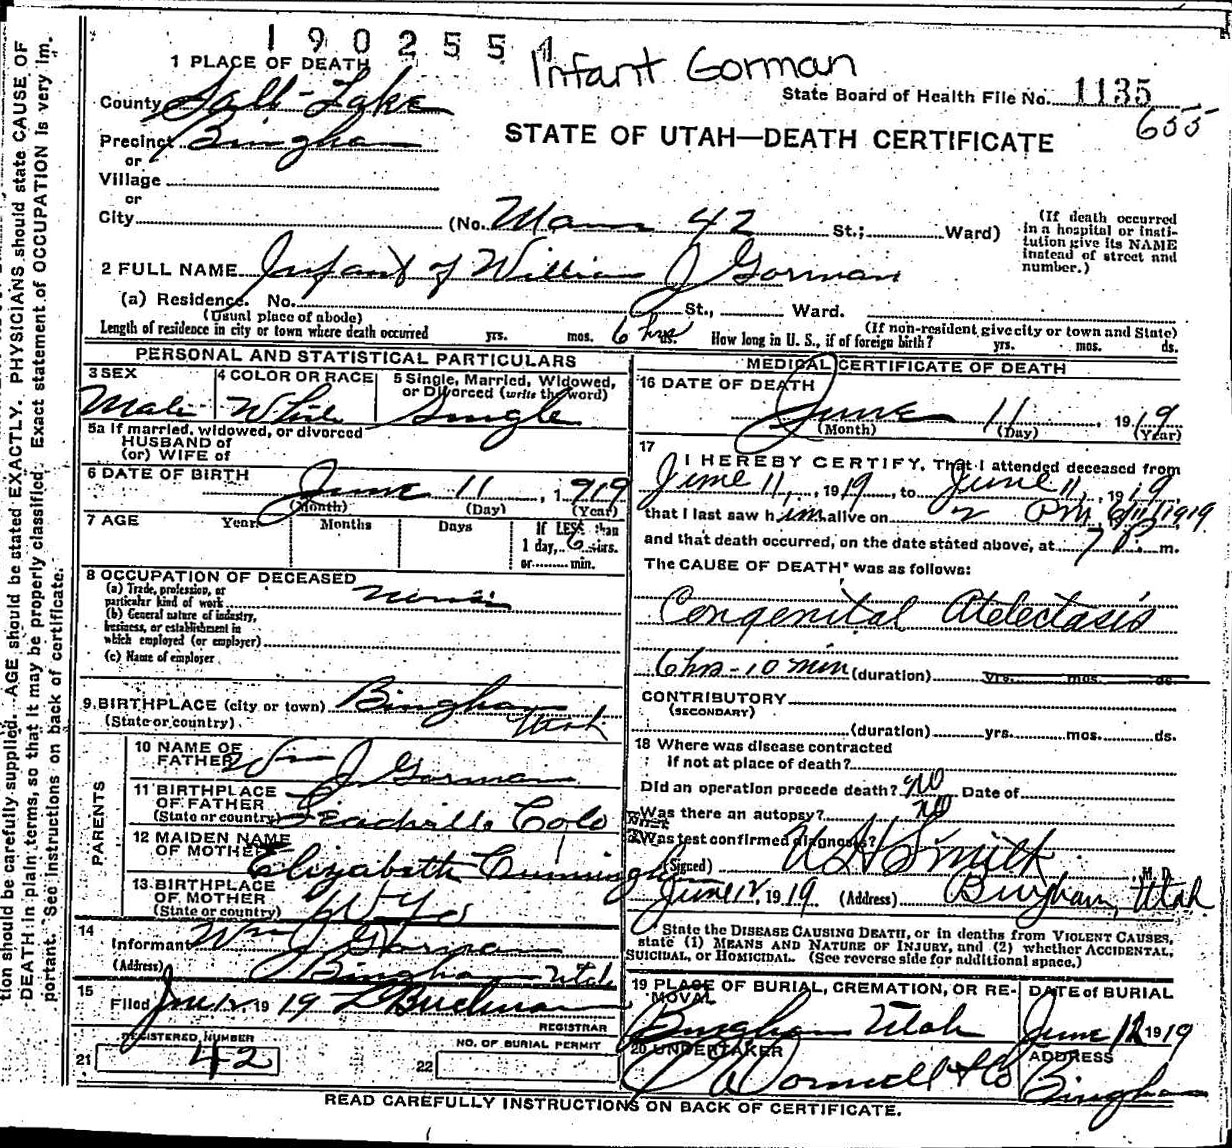 1 9 0 2 5 5 1
Infant Gorman
1 PLACE OF DEATH
State Board of Health File No. 1135
655
County Salt-Lake
STATE OF UTAH—DEATH CERTIFICATE
Precinct Bingham
or
Village
or
City (No. Main 42 St.; Ward)
(If death occurred in a hospital or insti-
tution give its NAME
instead of street and
number.)
2 FULL NAME Infant of William J Gorman
(a) Residence. No. St., Ward.
(Usual place of abode) (If non-resident give city or town and State)
Length of residence in city or town where death occurred yrs. mos. 6 hrs ds. How long in U. S., if of foreign birth? yrs. mos. ds.
PERSONAL AND STATISTICAL PARTICULARS
3 SEX 4 COLOR OR RACE 5 Single, Married, Widowed,
or Divorced (write the word)
Male White Single
5a If married, widowed, or divorced
HUSBAND of
(or) WIFE of
6 DATE OF BIRTH June 11, 1919
(Month) (Day) (Year)
7 AGE Years Months Days If LESS than
1 day, 6 hrs.
or min.
8 OCCUPATION OF DECEASED
(a) Trade, profession, or
particular kind of work
(b) General nature of industry,
business, or establishment in
which employed (or employer)
(c) Name of employer
9. BIRTHPLACE (city or town) Bingham
(State or country) Utah
PARENTS
10 NAME OF
FATHER Wm J Gorman
11 BIRTHPLACE
OF FATHER
(State or country) Leadville Colo
12 MAIDEN NAME
OF MOTHER Elizabeth Cunningham
13 BIRTHPLACE
OF MOTHER
(State or country) Wyo
14 Informant Wm J Gorman
(Address) Bingham Utah
15 Filed June 12, 1919
REGISTRAR
REGISTERED NUMBER
21 42
NO. OF BURIAL PERMIT
22
MEDICAL CERTIFICATE OF DEATH
16 DATE OF DEATH
June 11, 1919
(Month) (Day) (Year)
17 I HEREBY CERTIFY, That I attended deceased from
June 11, 1919, to June 11, 1919,
that I last saw him alive on 2 PM 6/11/1919
and that death occurred, on the date stated above, at 7 P. m.
The CAUSE OF DEATH* was as follows:
Congenital Atelectasis
6 hrs - 10 min (duration) yrs. mos. ds.
CONTRIBUTORY
(SECONDARY)
(duration) yrs. mos. ds.
18 Where was disease contracted
if not at place of death?
Did an operation precede death? no Date of
Was there an autopsy? no
Was test confirmed diagnosis?
(Signed) Smith, M. D.
June 12, 1919 (Address) Bingham, Utah
State the DISEASE CAUSING DEATH, or in deaths from VIOLENT CAUSES,
state (1) MEANS AND NATURE OF INJURY, and (2) whether ACCIDENTAL,
SUICIDAL, or HOMICIDAL. (See reverse side for additional space.)
19 PLACE OF BURIAL, CREMATION, OR RE-
MOVAL
Bingham Utah
DATE of BURIAL
June 12 1919
20 UNDERTAKER
ADDRESS
Bingham
READ CAREFULLY INSTRUCTIONS ON BACK OF CERTIFICATE.
tion should be carefully supplied. AGE should be stated EXACTLY. PHYSICIANS should state CAUSE OF
DEATH in plain terms, so that it may be properly classified. Exact statement of OCCUPATION is very im-
portant. See instructions on back of certificate.